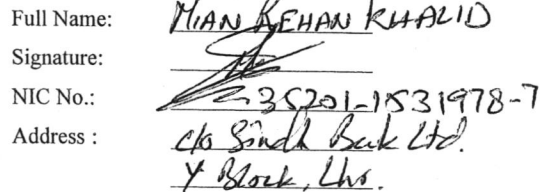 Full Name: MIAN REHAN KHALID
Signature:
NIC No.: 35201-1531978-7
Address : c/o Sindh Bank Ltd.
Y Block, Lhr.